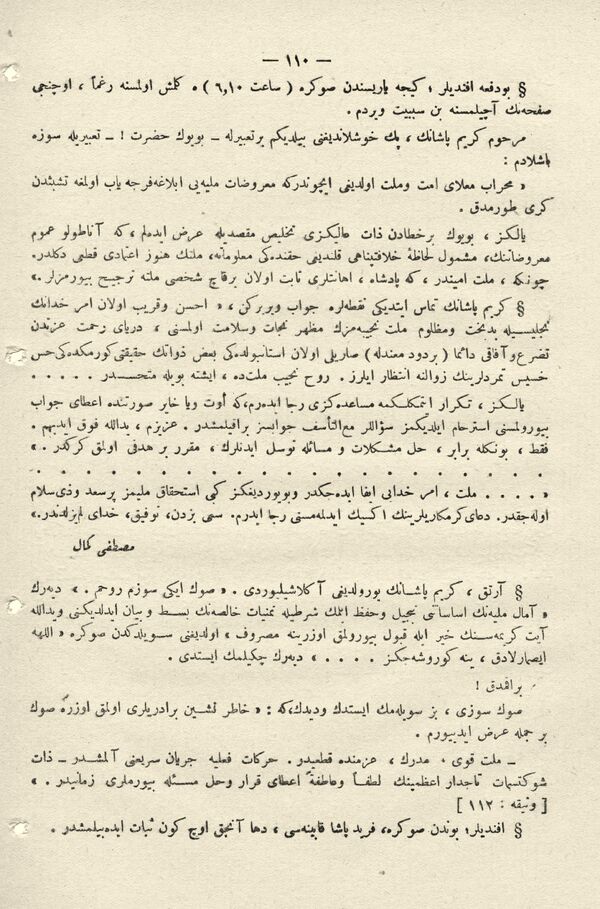 — ١١٠ —
§ بودفعه افندیلر ؛ كیجه یاریسندن صوكره ( ساعت ٦,١٠ ) ه كلمش اولمسنه رغماً ، اوچنجی
صفحه‌نك آچیلمسنه بن سببیت ویردم .
مرحوم كریم پاشانك ، پك خوشلاندیغنی بیلدیكم برتعبیرله ــ بویوك حضرت ! ــ تعبیریله سوزه
باشلادم :
« محراب معلای امت وملت اولدیغی ایچوندركه معروضات ملیه‌یی ابلاغه فرجه یاب اولمغه تشبثدن
كری طورمدق .
یالكز ، بویوك برخطادن ذات عالیكزی تخلیص مقصدیله عرض ایده‌لم ، كه آناطولو عموم
معروضاتنك، مشمول لحاظهٔ خلافتپناهی قلندیغی حقنده‌كی معلوماته، ملتك هنوز اعتمادی قطعی دكلدر.
چونكه ، ملت امیندر ، كه پادشاه ، اهانتلری ثابت اولان برقاچ شخصی ملته ترجیح بیورمزلر .»
§ كریم پاشانك تماس ایتدیكی نقطه‌لره جواب ویریركن ، « احسن وقریب اولان امر خدانك
تجلیسیله بدبخت ومظلوم ملت نجیبه‌مزك مظهر نجات وسلامت اولمسنی ، دریای رحمت عزتدن
تضرع وآفاقی دائما ( بردود معندله ) صاریلی اولان استانبولده‌كی بعض ذواتك حقیقتی كورمكده‌كی حس
خسیس تمردلرینك زوالنه انتظار ایلرز . روح نجیب ملت‌ده ، ایشته بویله متحسسدر . . . . .
یالكز ، تكرار ایتمكلكمه مساعده‌كزی رجا ایده‌رم،كه اوت ویا خایر صورتنده اعطای جواب
بیورولمسنی استرحام ایلدیكمز سؤاللر مع‌التأسف جوابسز براقیلمشدر . عزیزم ، یدالله فوق ایدیهم .
فقط ، بونكله برابر ، حل مشكلات و مسائله توسل ایدنلرك ، مقرر بر هدفی اولمق كركدر . »
. . . . . . . . . . . . . . . . . . . .
« . . . . . ملت ، امر خدایی ایفا ایده‌جكدر وبویوردیغكز كبی استحقاق ملیمز پرسعد وذی‌سلام
اوله‌جقدر. دعای كرمكاریلرینك اكسیك ایدلمه‌مسنی رجا ایدرم. سعی بزدن، توفیق، خدای لم‌یزلدندر.»
مصطفی كمال
§ آرتق ، كریم پاشانك یورولدیغی آكلاشیلیوردی . « صوك ایكی سوزم روحم . » دیه‌رك
« آمال ملیه‌نك اساساتنی تبجیل وحفظ ایتمك شرطیله تمنیات خالصه‌نك بسط و بیان ایدلدیكنی ویدالله
آیت كریمه‌سنك خیر ایله قبول بیورولمق اوزرینه مصروف » اولدیغنی سویلدكدن صوكره « اللهه
ایصمارلادق ، ینه كوروشه‌جكز . . . . » دیه‌رك چكیلمك ایستدی .
براقمدق !
صوك سوزی ، بز سویله‌مك ایستدك ودیدك،كه : « خاطر نشین برادریلری اولمق اوزره صوك
بر جمله عرض ایدییورم .
ــ ملت قوی ، مدرك ، عزمنده قطعیدر. حركات فعلیه جریان سریعنی آلمشدر ــ ذات
شوكتسمات تاجدار اعظمینك لطفاً وعاطفةً اعطای قرار وحل مسئله بیورملری زمانیدر . »
[ وثیقه : ١١٢ ]
§ افندیلر؛ بوندن صوكره، فرید پاشا قابینه‌سی، دها آنجق اوچ كون ثبات ایده‌بیلمشدر .